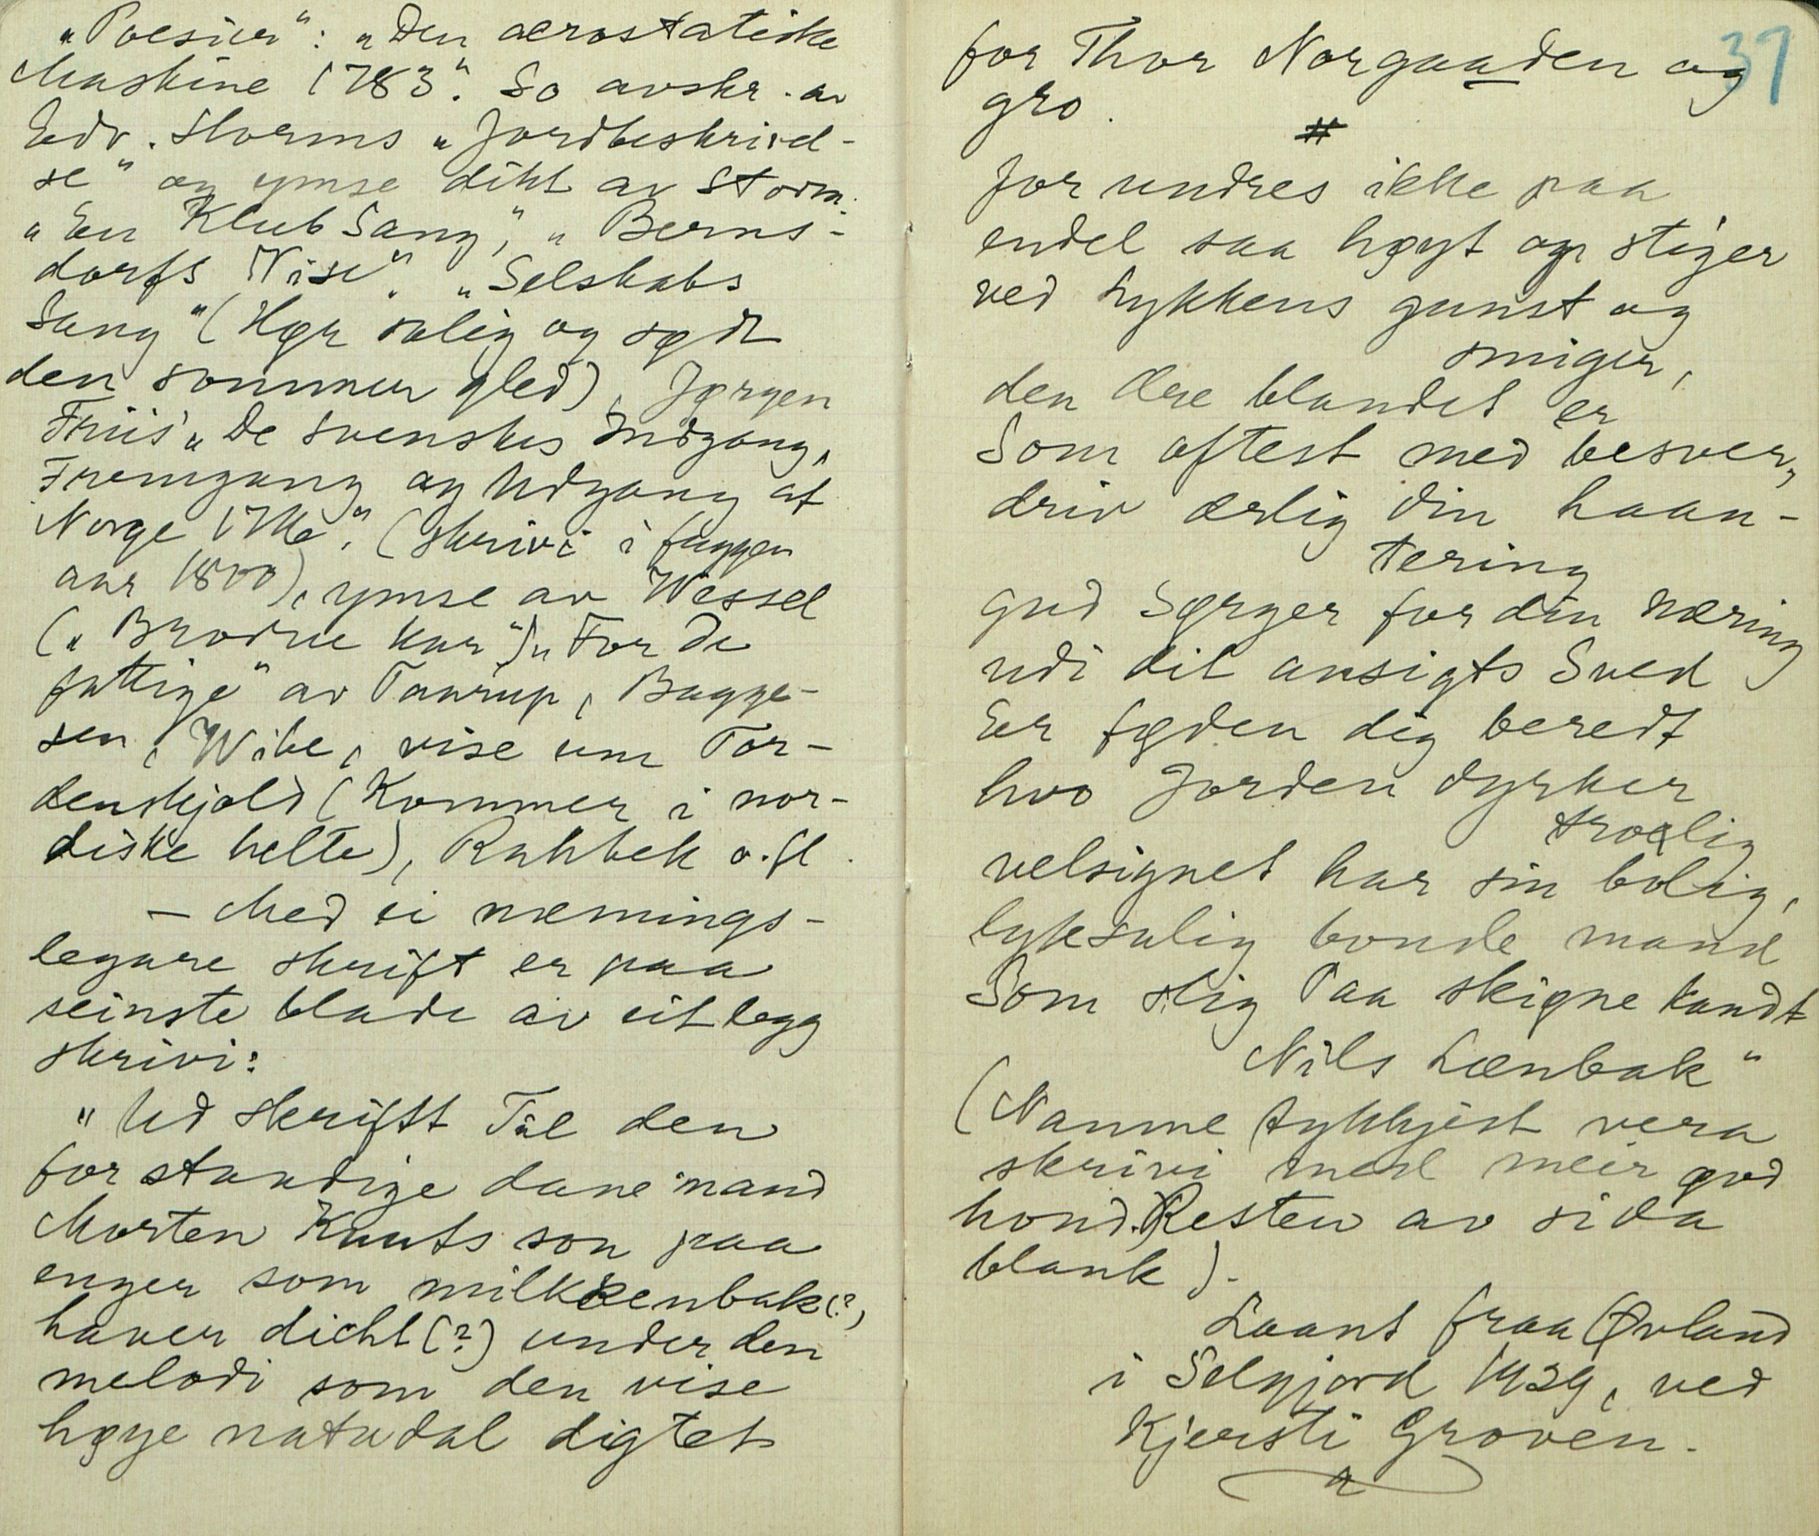 „Poesier": „Den ærostatiske
Maskine 1783". So avskr. av
Edv. Storms „Jordbeskrivel-
se" og ymse dikt av Storm:
„En Klub Sang", „Berns-
dorfs Vise". „Selskabs
Sang" (Hør salig og sødt
den sommer gled), Jørgen
Friis „De Svenskes Indgang,
Fremgang og Udgang af
Norge". (skrivi i
aar 1800), ymse av Wessel
(„Brødre har") „For de
fattige" av Taarup, Bagge-
sen, Wibe, vise um Tor-
denskjold (Kommer i nor-
diske helte), Rahbek o.fl.
— Med ei næmings-
legare skrift er paa
seinste blade av eit legg
skrivi:
„Ud skriftt Til den
for standige dane mand
Morten Knuts son paa
enger som milkkenbak (?)
haver dicht (?) under den
melodi som den vise
høye natudal digtet
37
for Thor Norgaaden og
gro.
#
forundres ikke paa
endel saa høyt op stiger
ved Lykkens gunst og
smiger,
den ære blandet er
Som oftest med besver,
driv ærlig din haan-
tering
gud sørger for din næring
udi dit ansigts Sved
Er føden dig beredt
hvo Jorden dyrker
troelig
velsignet har sin bolig,
lyksalig bonde mand
Som slig Paa skiøne kandt
Nils Lænbak"
(Namne tykkjest vera
skrivi med meir god
hond. Resten av sida
blank).
Laant fraa Øvland
i Seljord 1929, ved
Kjersti Groven.